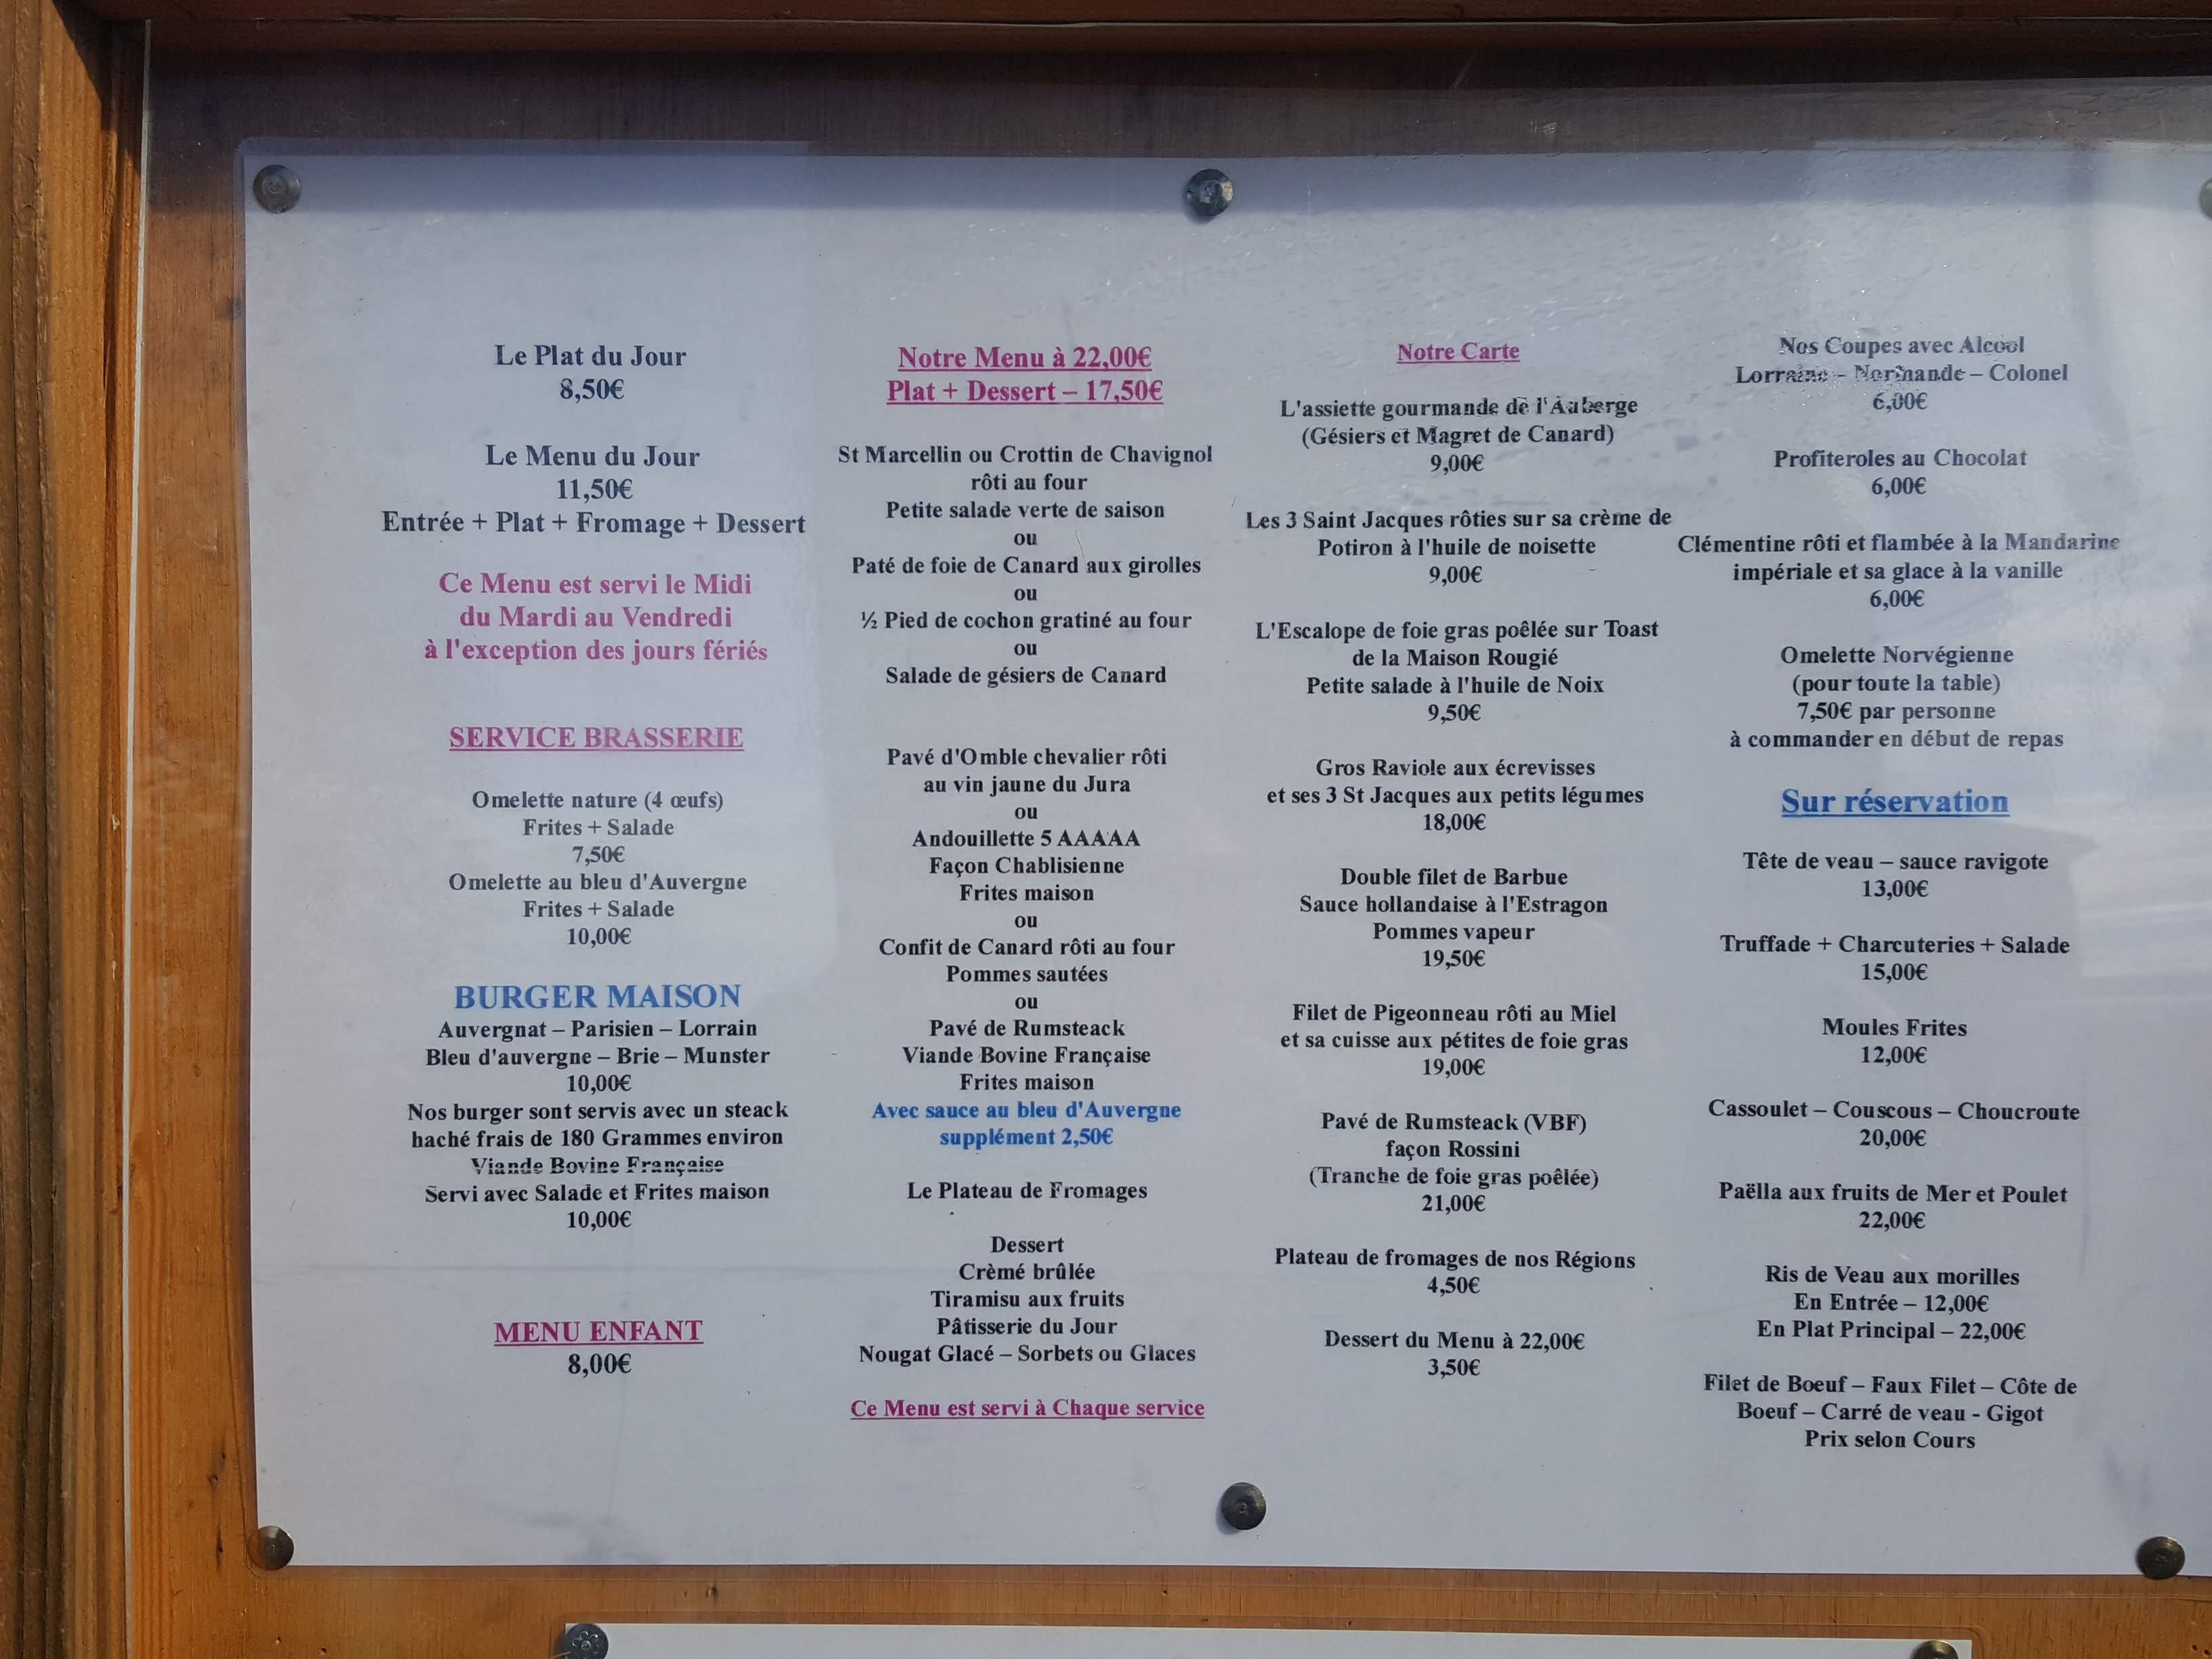 Le Plat du Jour
8,50€
Le Menu du Jour
11,50€
Entrée + Plat + Fromage + Dessert
Ce Menu est servi le Midi
du Mardi au Vendredi
à l'exception des jours fériés
SERVICE BRASSERIE
Omelette nature (4 œufs)
Frites + Salade
7,50€
Omelette au bleu d'Auvergne
Frites + Salade
10,00€
BURGER MAISON
Auvergnat – Parisien – Lorrain
Bleu d'auvergne – Brie – Munster
10,00€
Nos burger sont servis avec un steack
haché frais de 180 Grammes environ
Viande Bovine Française
Servi avec Salade et Frites maison
10,00€
MENU ENFANT
8,00€
Notre Menu à 22,00€
Plat + Dessert – 17,50€
St Marcellin ou Crottin de Chavignol
rôti au four
Petite salade verte de saison
ou
Paté de foie de Canard aux girolles
ou
½ Pied de cochon gratiné au four
ou
Salade de gésiers de Canard
Pavé d'Omble chevalier rôti
au vin jaune du Jura
ou
Andouillette 5 AAAAA
Façon Chablisienne
Frites maison
ou
Confit de Canard rôti au four
Pommes sautées
ou
Pavé de Rumsteack
Viande Bovine Française
Frites maison
Avec sauce au bleu d'Auvergne
supplément 2,50€
Le Plateau de Fromages
Dessert
Crèmé brûlée
Tiramisu aux fruits
Pâtisserie du Jour
Nougat Glacé – Sorbets ou Glaces
Ce Menu est servi à Chaque service
Notre Carte
L'assiette gourmande de l'Auberge
(Gésiers et Magret de Canard)
9,00€
Les 3 Saint Jacques rôties sur sa crème de
Potiron à l'huile de noisette
9,00€
L'Escalope de foie gras poêlée sur Toast
de la Maison Rougié
Petite salade à l'huile de Noix
9,50€
Gros Raviole aux écrevisses
et ses 3 St Jacques aux petits légumes
18,00€
Double filet de Barbue
Sauce hollandaise à l'Estragon
Pommes vapeur
19,50€
Filet de Pigeonneau rôti au Miel
et sa cuisse aux pétites de foie gras
19,00€
Pavé de Rumsteack (VBF)
façon Rossini
(Tranche de foie gras poêlée)
21,00€
Plateau de fromages de nos Régions
4,50€
Dessert du Menu à 22,00€
3,50€
Nos Coupes avec Alcool
Lorraine – Normande – Colonel
6,00€
Profiteroles au Chocolat
6,00€
Clémentine rôti et flambée à la Mandarine
impériale et sa glace à la vanille
6,00€
Omelette Norvégienne
(pour toute la table)
7,50€ par personne
à commander en début de repas
Sur réservation
Tête de veau – sauce ravigote
13,00€
Truffade + Charcuteries + Salade
15,00€
Moules Frites
12,00€
Cassoulet – Couscous – Choucroute
20,00€
Paëlla aux fruits de Mer et Poulet
22,00€
Ris de Veau aux morilles
En Entrée – 12,00€
En Plat Principal – 22,00€
Filet de Boeuf – Faux Filet – Côte de
Boeuf – Carré de veau - Gigot
Prix selon Cours